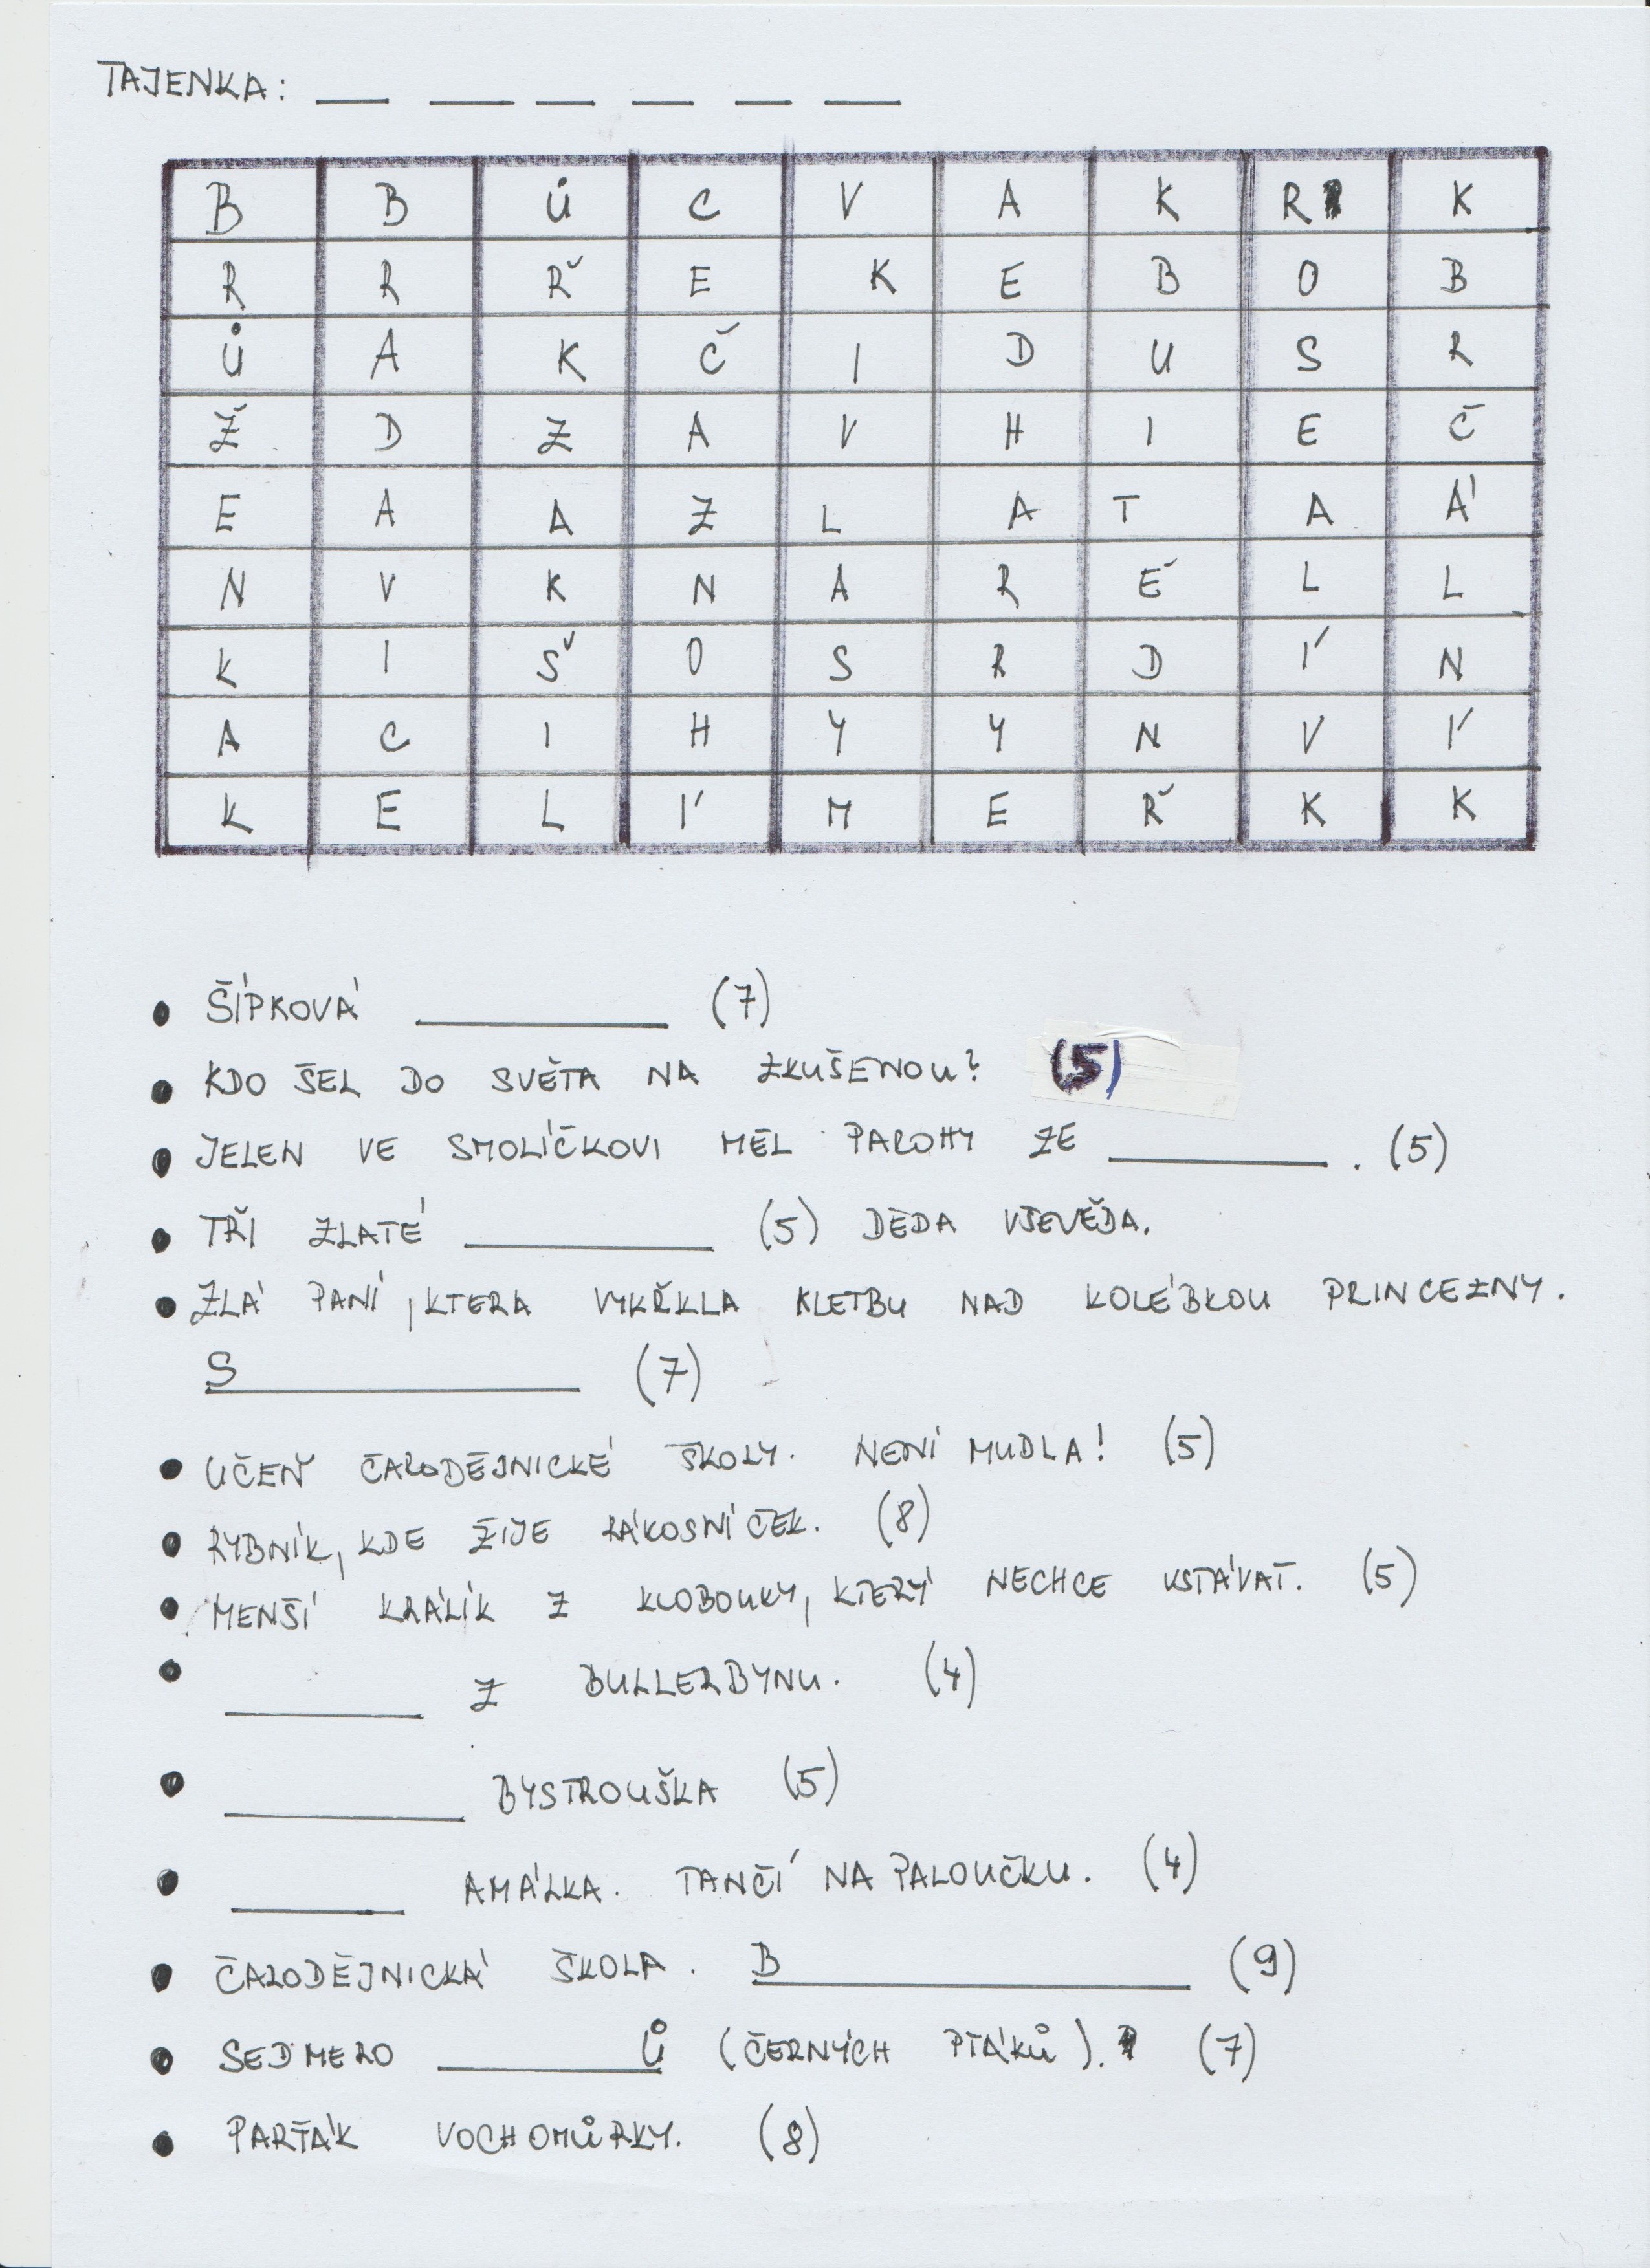 TAJENKA: __ __ __ __ __ __
B B Ů C V A K R K
R R Ř E K E B O B
Ů A K Č I D U S R
Ž D Z A V H I E Č
E A A Z L A T A Á
N V K N A R É L L
K I Š O S R D Í N
A C I H Y Y N V Í
K E L Í M E Ř K K
• ŠÍPKOVÁ ________ (7)
• KDO ŠEL DO SVĚTA NA ZKUŠENOU? (5)
• JELEN VE SMOLÍČKOVI MĚL PAROHY ZE ________. (5)
• TŘI ZLATÉ ________ (5) DĚDA VŠEVĚDA.
• ZLÁ PANÍ, KTERA VYKŘKLA KLETBU NAD KOLÉBKOU PRINCEZNY.
S________ (7)
• UČEŇ ČARODĚJNICKÉ ŠKOLY. NENÍ MUDLA! (5)
• RYBNÍK, KDE ŽIJE RÁKOSNÍČEK. (8)
• MENŠÍ KRÁLÍK Z KLOBOUKY, KTERÝ NECHCE VSTÁVAT. (5)
• ________ Z BULLERBYNU. (4)
• ________ BYSTROUŠKA (5)
• ________ AMÁLKA. TANČÍ NA PALOUČKU. (4)
• ČARODĚJNICKÁ ŠKOLA. B________ (9)
• SEDMERO ________Ů (ČERNÝCH PTÁKŮ). (7)
• PARŤÁK VOCHOMŮRKY. (8)